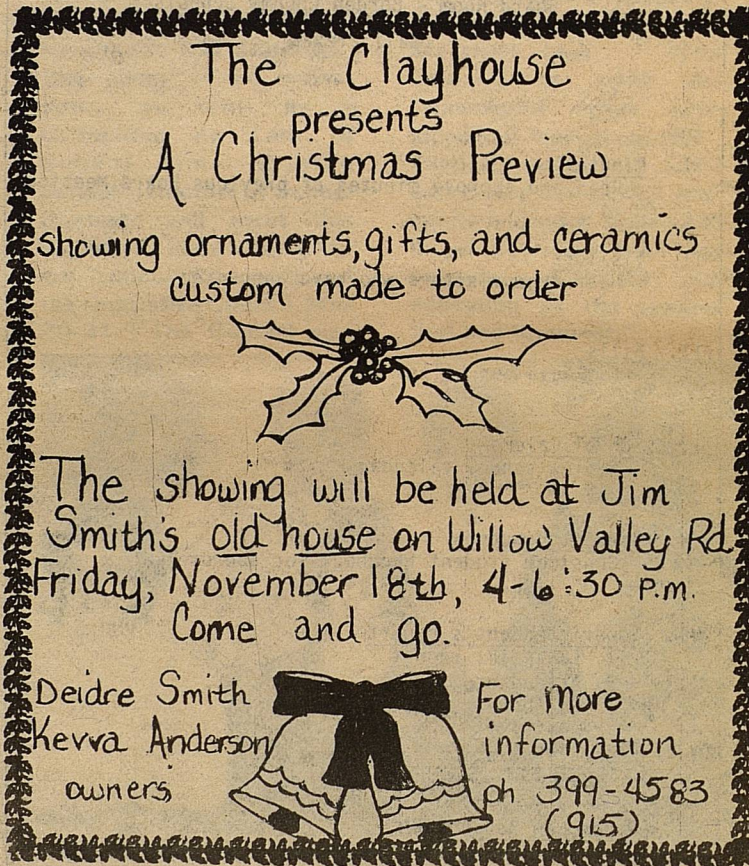 The Clayhouse
presents
A Christmas Preview
showing ornaments, gifts, and ceramics
custom made to order
The showing will be held at Jim
Smith's old house on Willow Valley Rd.
Friday, November 18th, 4-6:30 P.M.
Come and go.
Deidre Smith
Kevva Anderson
owners
For More
information
ph 399-4583
(915)